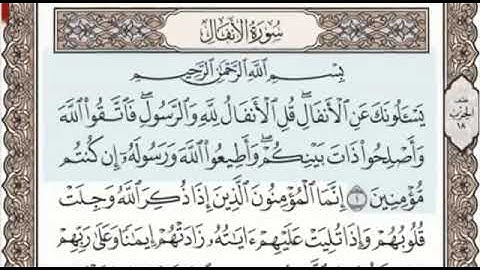 سُورَةُ الأَنفَالِ
بِسْمِ اللَّهِ الرَّحْمَٰنِ الرَّحِيمِ
يَسْـَٔلُونَكَ عَنِ ٱلْأَنفَالِ ۖ قُلِ ٱلْأَنفَالُ لِلَّهِ وَٱلرَّسُولِ ۖ فَٱتَّقُوا۟ ٱللَّهَ
وَأَصْلِحُوا۟ ذَاتَ بَيْنِكُمْ ۖ وَأَطِيعُوا۟ ٱللَّهَ وَرَسُولَهُۥٓ إِن كُنتُم
مُّؤْمِنِينَ ١ إِنَّمَا ٱلْمُؤْمِنُونَ ٱلَّذِينَ إِذَا ذُكِرَ ٱللَّهُ وَجِلَتْ
قُلُوبُهُمْ وَإِذَا تُلِيَتْ عَلَيْهِمْ ءَايَٰتُهُۥ زَادَتْهُمْ إِيمَٰنًا وَعَلَىٰ رَبِّهِمْ
الحِزْب
١٨